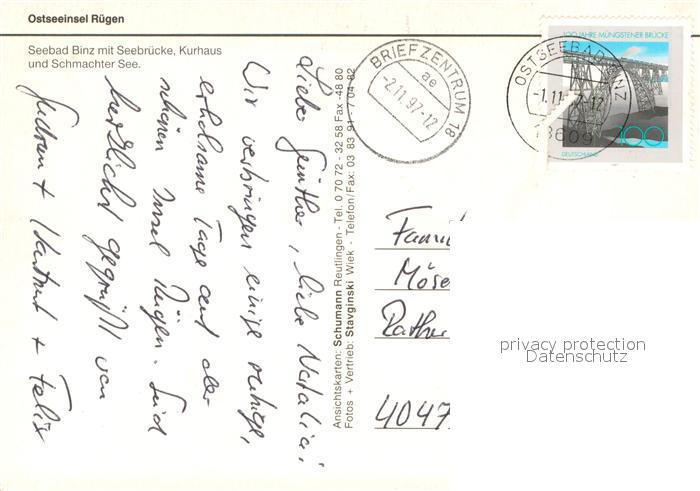 Ostseeinsel Rügen
Seebad Binz mit Seebrücke, Kurhaus
und Schmachter See.
Liebe Günther, liebe Natalie,
Wir verbringen einige ruhige,
erholsame Tage auf der
schönen Insel Rügen. Seid
herzlichst gegrüßt von
Gudrun + Hartmut + Felix
Ansichtskarten: Schumann Reutlingen - Tel. 0 70 72 - 32 58 Fax -48 80
Fotos + Vertrieb: Stavginski Wiek - Telefon/Fax: 03 83 91 - 7 04 82
BRIEFZENTRUM 18
ae
-2.11.97-12
OSTSEEBAD BINZ
-1.11. 7-12
18609
100 JAHRE MÜNGSTENER BRÜCKE
100
DEUTSCHLAND
Fami
Möse
Rathe
4047
privacy protection
Datenschutz